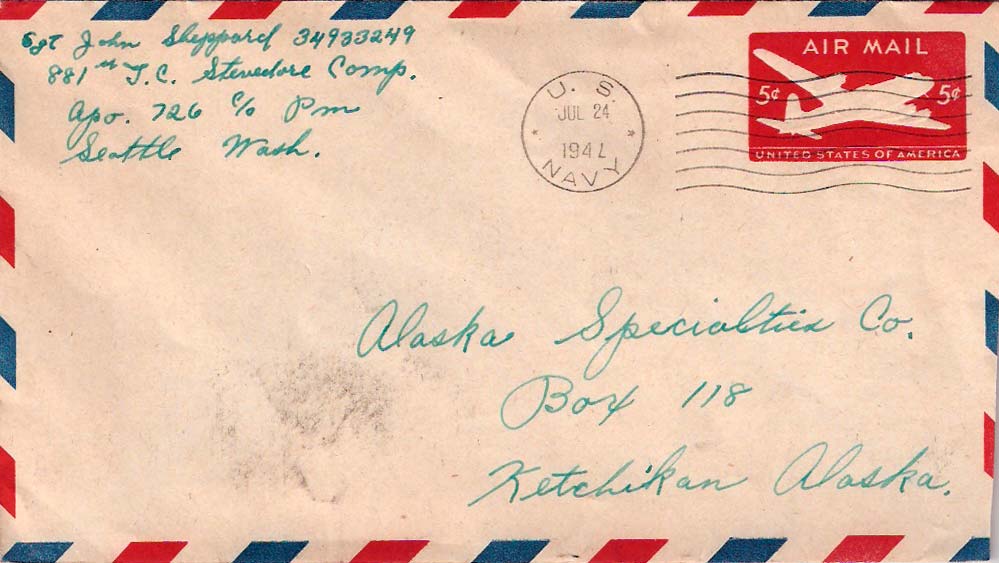 Sgt John Sheppard 34933249
881st T.C. Stevedore Comp.
Apo. 726 c/o Pm
Seattle Wash.
U. S.
JUL 24
194
NAVY
AIR MAIL
5¢ 5¢
UNITED STATES OF AMERICA
Alaska Specialties Co.
Box 118
Ketchikan Alaska.